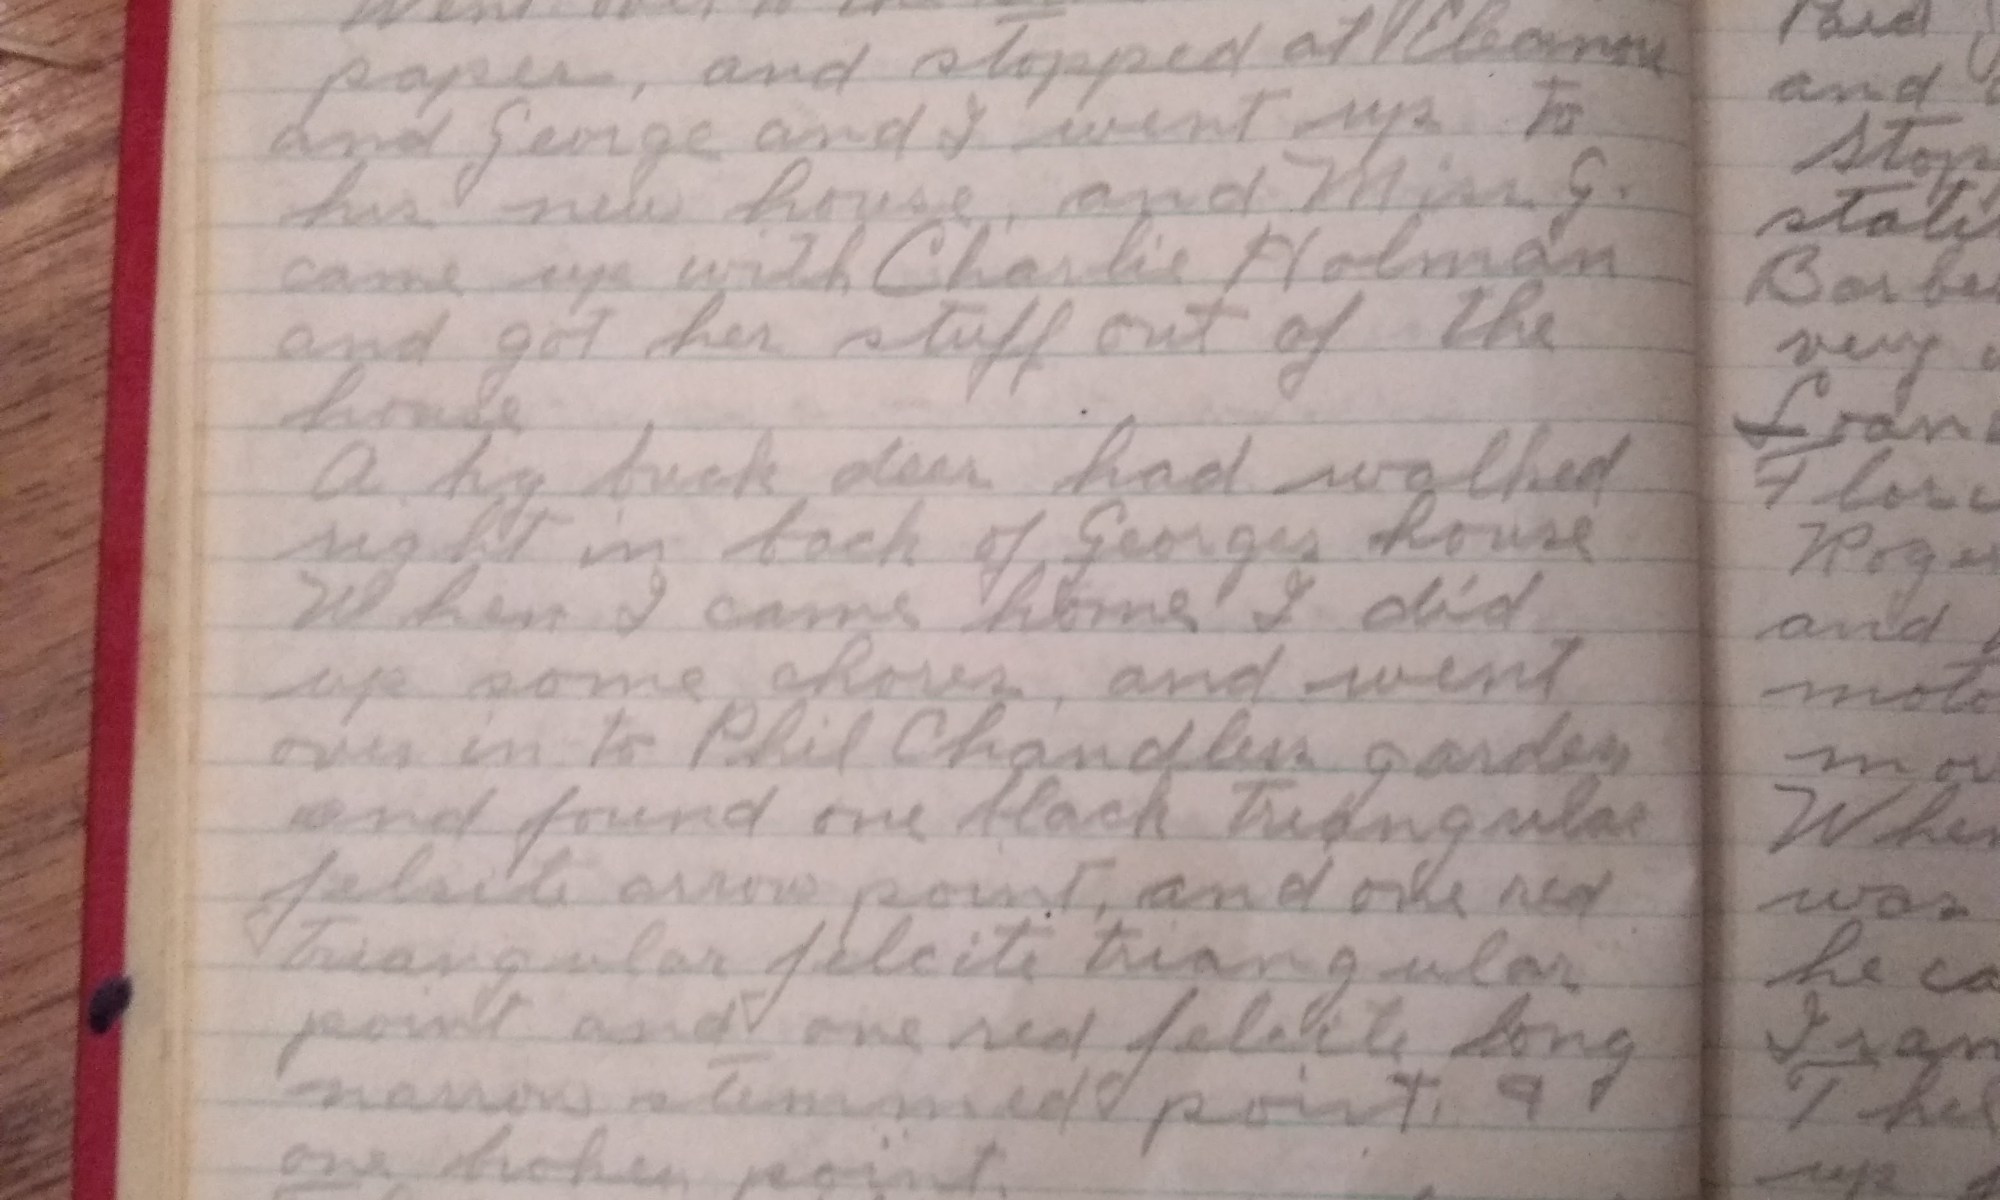 Went over to the
paper, and stopped at Eleanors
and George and I went up to
his new house, and Miss G.
came up with Charlie Holman
and got her stuff out of the
house
A big buck deer had walked
right in back of Georges house
When I came home I did
up some chores, and went
over in to Phil Chandlers garden
and found one black triangular
felsite arrow point, and one red
triangular felcite triangular
point and one red felcite long
narrow stemmed point, &
one broken point.
Paid
and
Stop
stati
Barbe
very
Fran
Flor
Roge
and
moto
mo
When
was
he ca
I ran
The
up